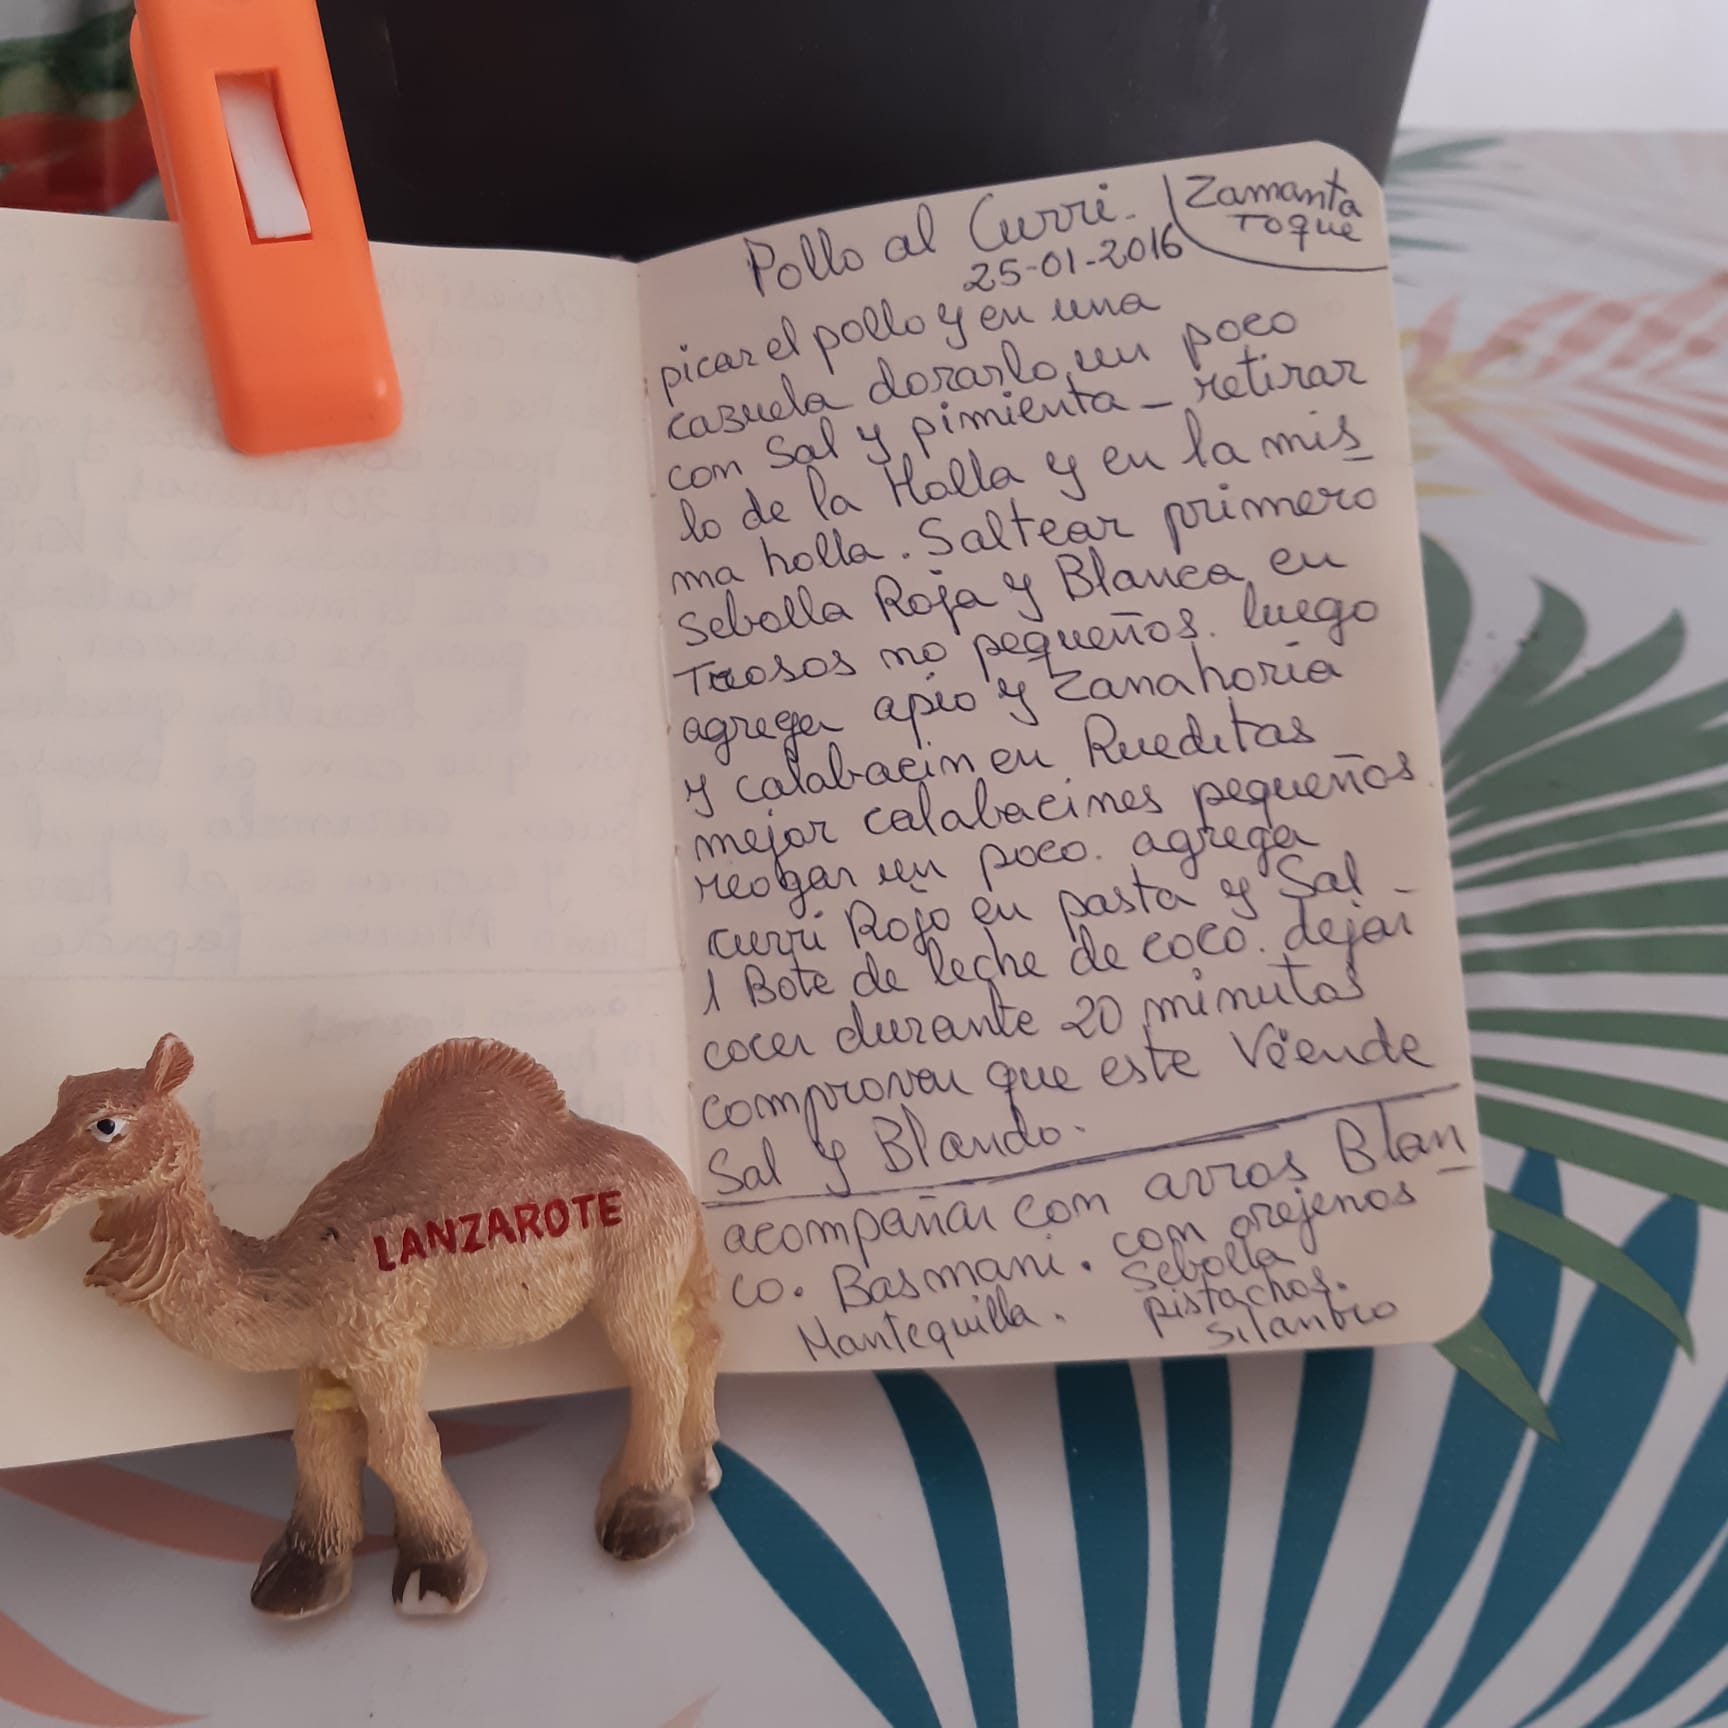 Pollo al Curri.
Zamanta
Toque
25-01-2016
picar el pollo y en una
casuela dorarlo, un poco
con Sal y pimienta - retirar
lo de la Holla y en la mis
ma holla. Saltear primero
Sebolla Roja y Blanca, en
Trosos no pequeños. luego
agregar apio y Zanahoria
y calabacin en Rueditas
mejor calabacines pequeños.
reogar un poco. agrega
curri Rojo en pasta y Sal -
1 Bote de leche de coco. dejar
cocer durante 20 minutos
comprovar que este Veende
Sal y Blando.
acompañar con arros Blan
co. Basmani. con orejenos
Sebolla
Mantequilla. pistachos.
Silantro
LANZAROTE